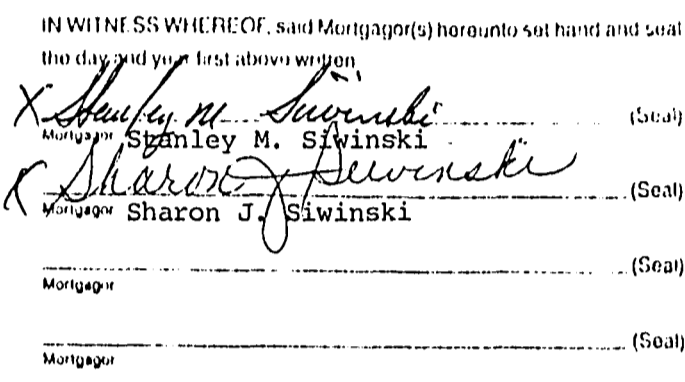 IN WITNESS WHEREOF, said Mortgagor(s) hereunto set hand and seal
the day and year first above written
X Stanley M Siwinski (Seal)
Mortgagor Stanley M. Siwinski
X Sharon J Siwinski (Seal)
Mortgagor Sharon J. Siwinski
(Seal)
Mortgagor
(Seal)
Mortgagor